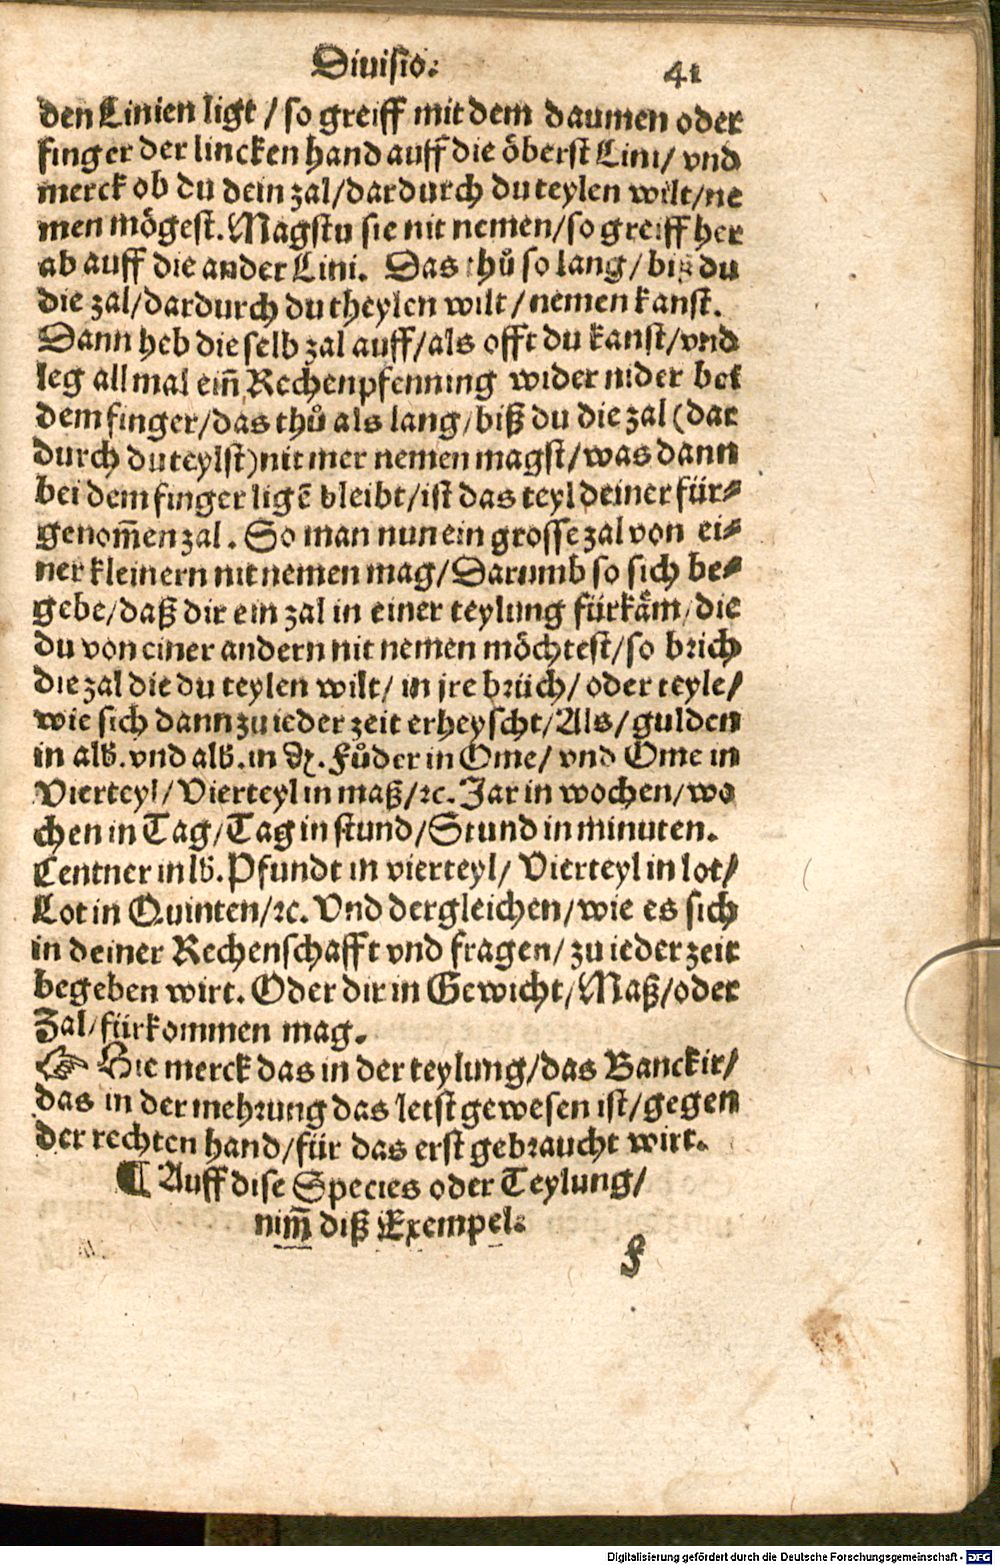 Diuisio. 41
den Linien ligt / so greiff mit dem daumen oder
finger der lincken hand auff die öberst Lini / vnd
merck ob du dein zal / dardurch du teylen wilt / ne
men mögest. Magstu sie nit nemen / so greiff her
ab auff die ander Lini. Das thů so lang / biß du
die zal / dardurch du theylen wilt / nemen kanst.
Dann heb die selb zal auff / als offt du kanst / vnd
leg all mal ein̄ Rechenpfenning wider nider bei
dem finger / das thů als lang / biß du die zal (dar
durch du teylst) nit mer nemen magst / was dann
bei dem finger ligē bleibt / ist das teyl deiner für⸗
genom̄en zal. So man nun ein grosse zal von ei⸗
ner kleinern nit nemen mag / Darumb so sich be⸗
gebe / daß dir ein zal in einer teylung fürkäm / die
du von einer andern nit nemen möchtest / so brich
die zal die du teylen wilt / in jre brüch / oder teyle /
wie sich dann zu ieder zeit erheyscht / Als / gulden
in alb. vnd alb. in ₰. Fůder in Ome / vnd Ome in
Vierteyl / Vierteyl in maß / ꝛc. Jar in wochen / wo
chen in Tag / Tag in stund / Stund in minuten.
Centner in lb. Pfundt in vierteyl / Vierteyl in lot /
Lot in Quinten / ꝛc. Vnd dergleichen / wie es sich
in deiner Rechenschafft vnd fragen / zu ieder zeit
begeben wirt. Oder dir in Gewicht / Maß / oder
Zal / fürkommen mag.
☞ Hie merck das in der teylung / das Banckir /
das in der mehrung das letst gewesen ist / gegen
der rechten hand / für das erst gebraucht wirt.
¶ Auff dise Species oder Teylung /
nim̄ diß Exempel.
F
Digitalisierung gefördert durch die Deutsche Forschungsgemeinschaft - DFG